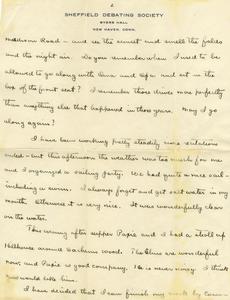 2
SHEFFIELD DEBATING SOCIETY
BYERS HALL
NEW HAVEN, CONN.
Madison Road – and see the sunset and smell the fields
and the night air. Do you remember when I used to be
allowed to go along with and sit in the
box of the front seat? I remember those drives more perfectly
than anything else that happened in those years. May I go
along again?
I have been working pretty steadily since recitations
ended – but this afternoon the weather was too much for me
and I organized a sailing party. We had quite a nice sail –
including a swim. I always forget and get salt water in my
mouth. Otherwise it is very nice. It was wonderfully clear
on the water.
This evening after supper Papie and I had a stroll up
Hillhouse Avenue to Sachem Wood. The Elms are wonderful
now, and Papie is good company. He is never noisy. I think
you would like him.
I have decided that I can finish my work by